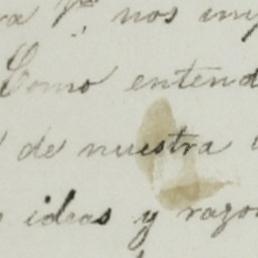 ra Vd. nos imp
Como entend
de nuestra
ideas y razo